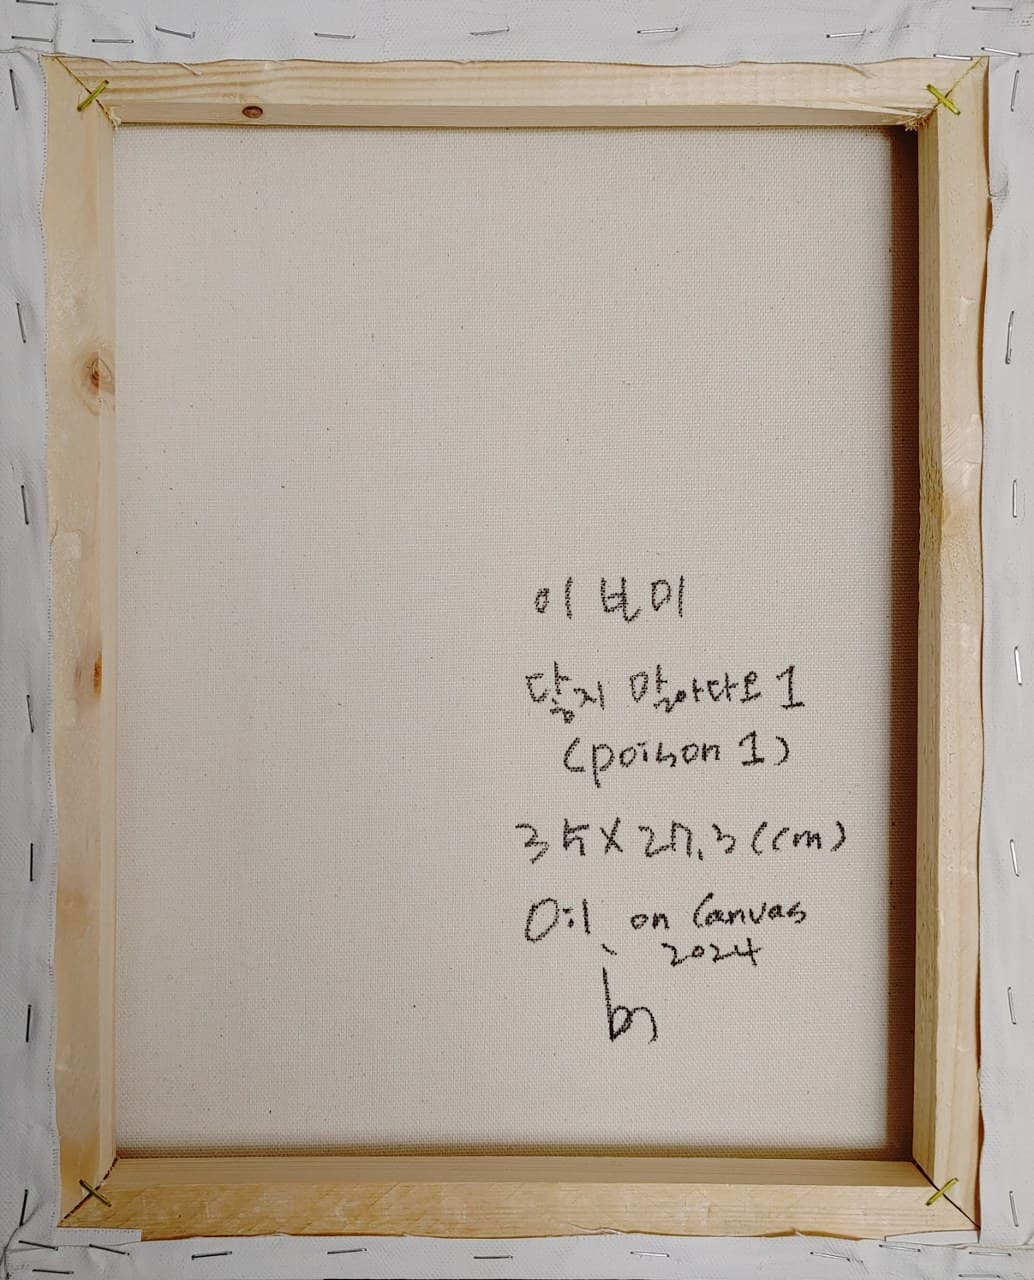 닿지 말아다오 1
(poison 1)
35 X 27.3 (cm)
Oil on Canvas
2024